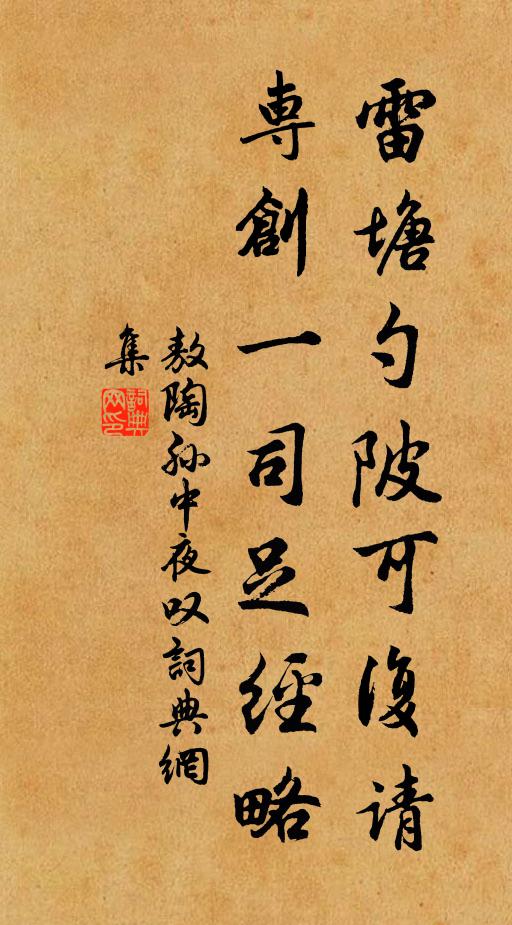 雷塘勺陂可復请
専創一司足經略
敖陶孙中夜叹詞典網
集
詞典網印